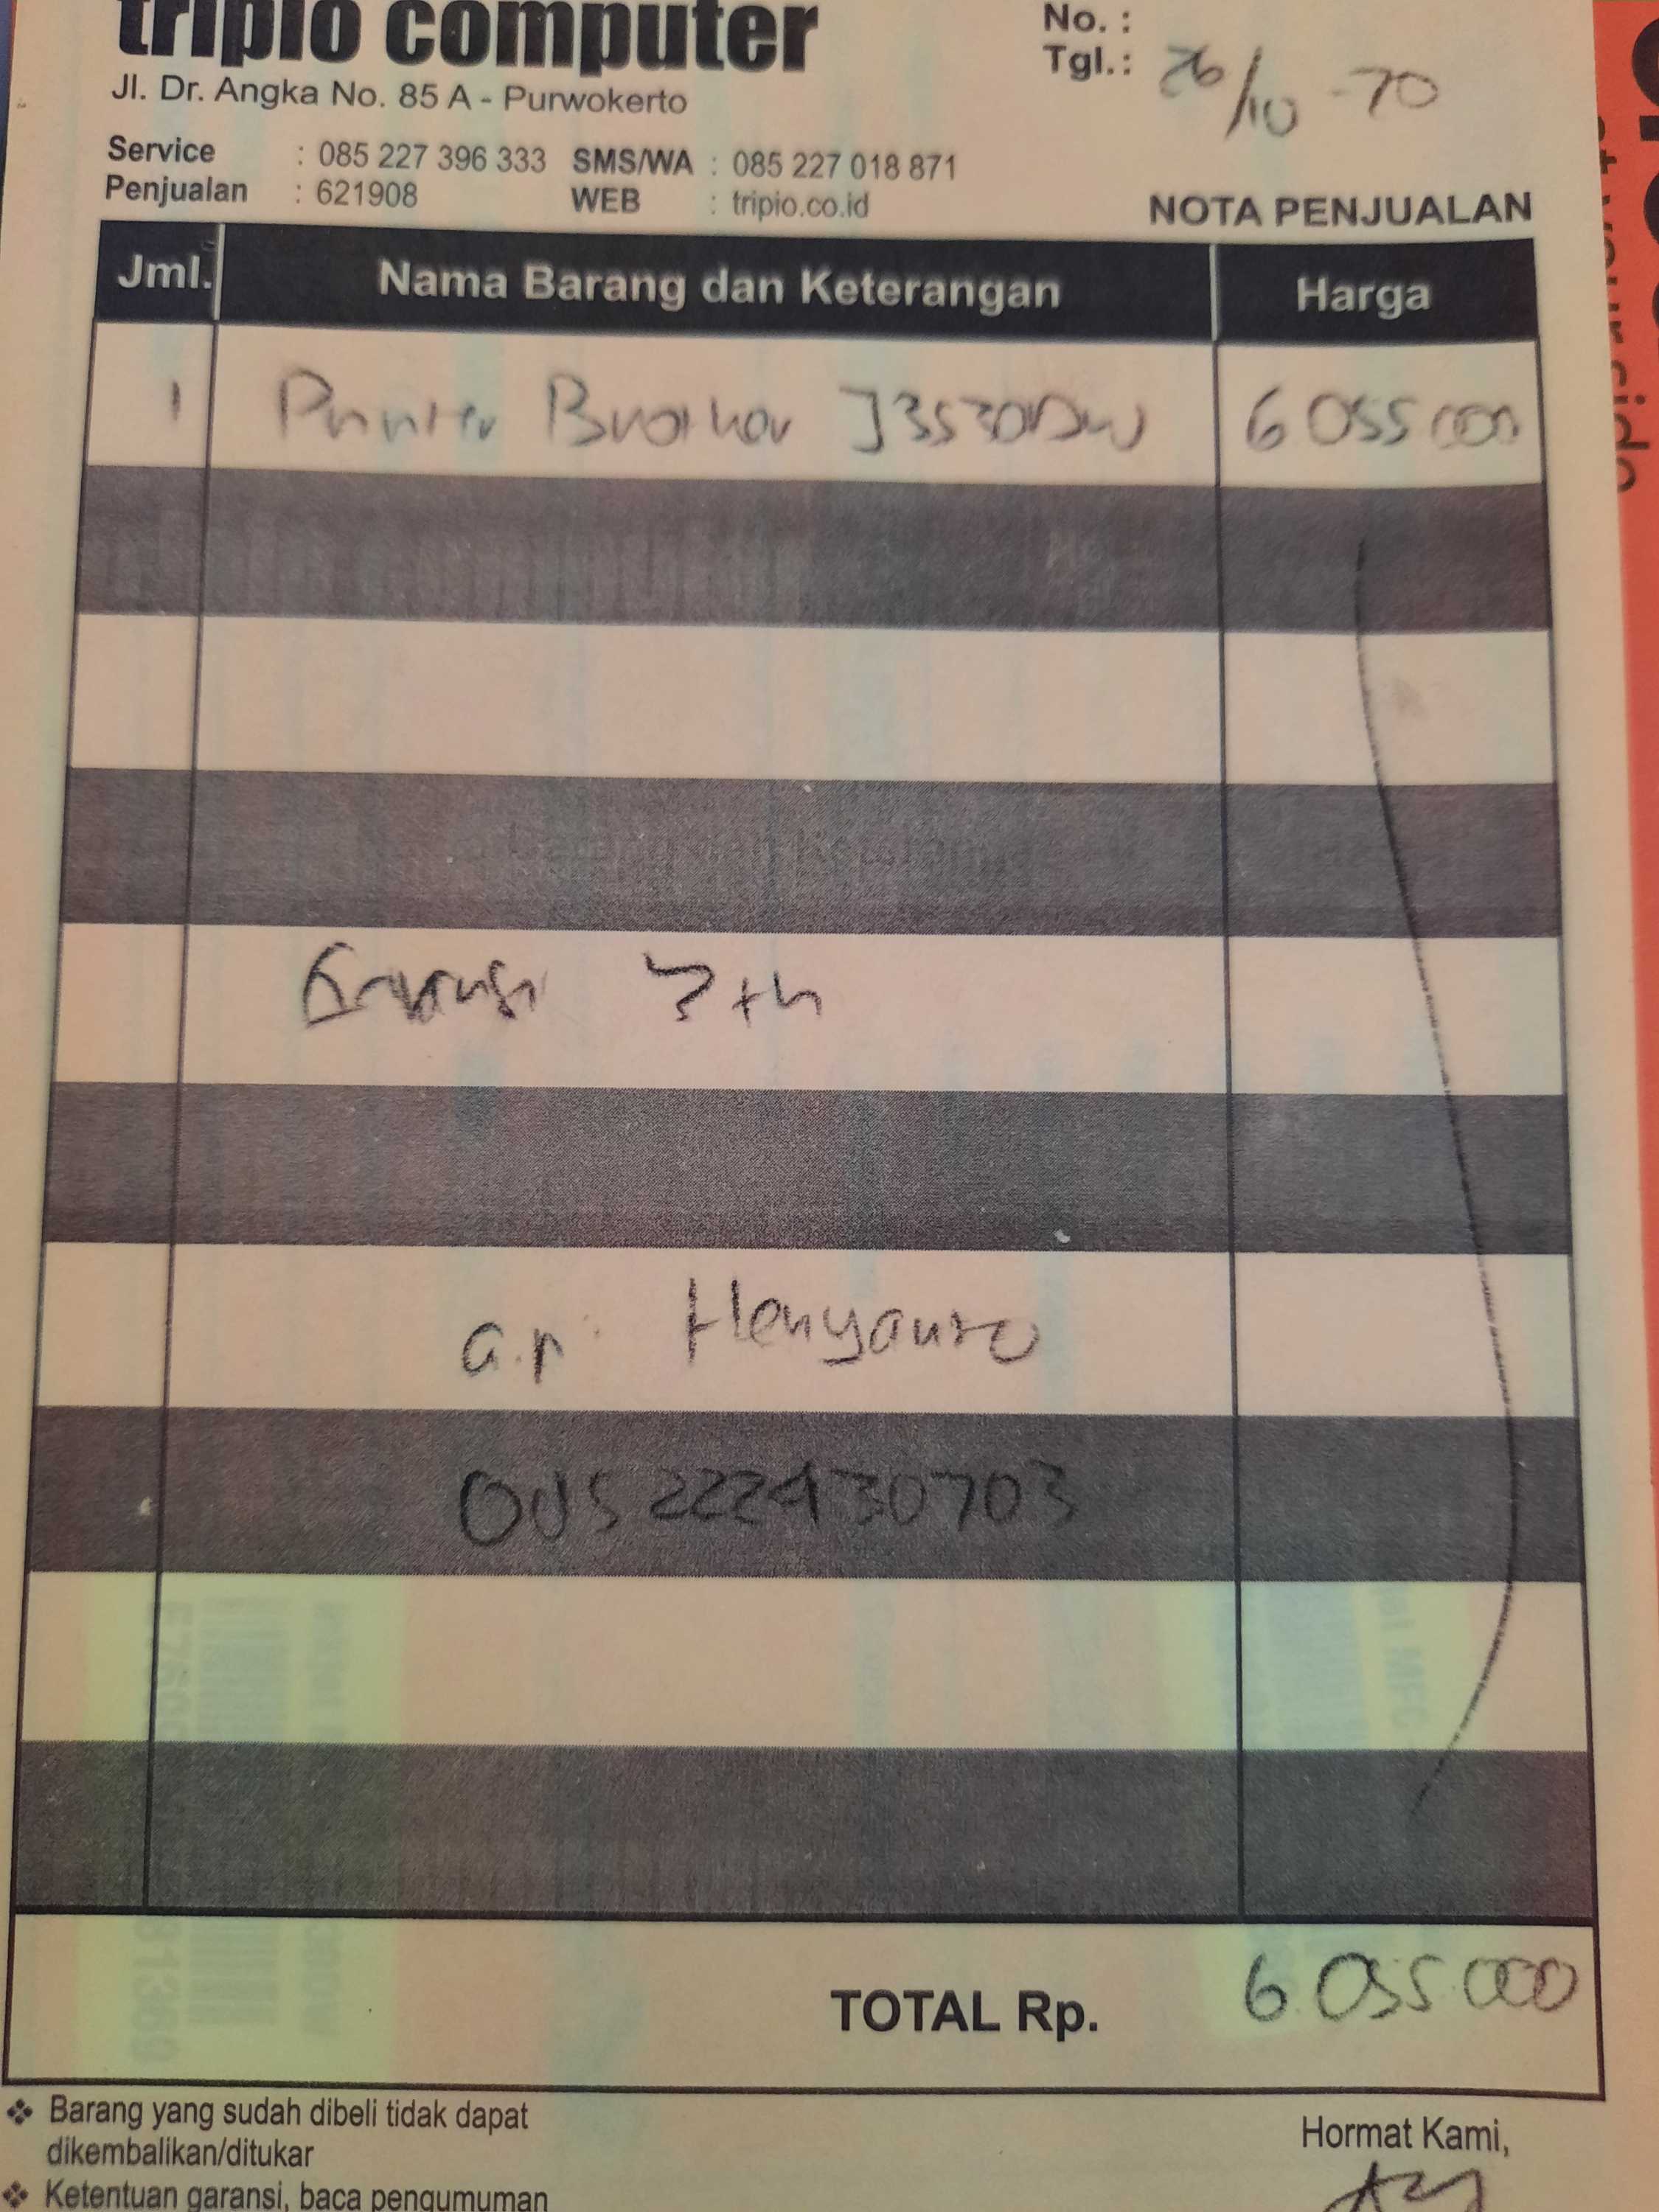 tripio computer
No. :
Jl. Dr. Angka No. 85 A - Purwokerto
Tgl.: 26/10 - 20
Service : 085 227 396 333 SMS/WA : 085 227 018 871
Penjualan : 621908 WEB : tripio.co.id
NOTA PENJUALAN
Jml. Nama Barang dan Keterangan Harga
1 Printer Brother J3530DW 6 055 000
Garansi 3 th
a.n. Henyanto
085222430703
TOTAL Rp. 6 055 000
❖ Barang yang sudah dibeli tidak dapat
dikembalikan/ditukar
Hormat Kami,
❖ Ketentuan garansi, baca pengumuman
at your side